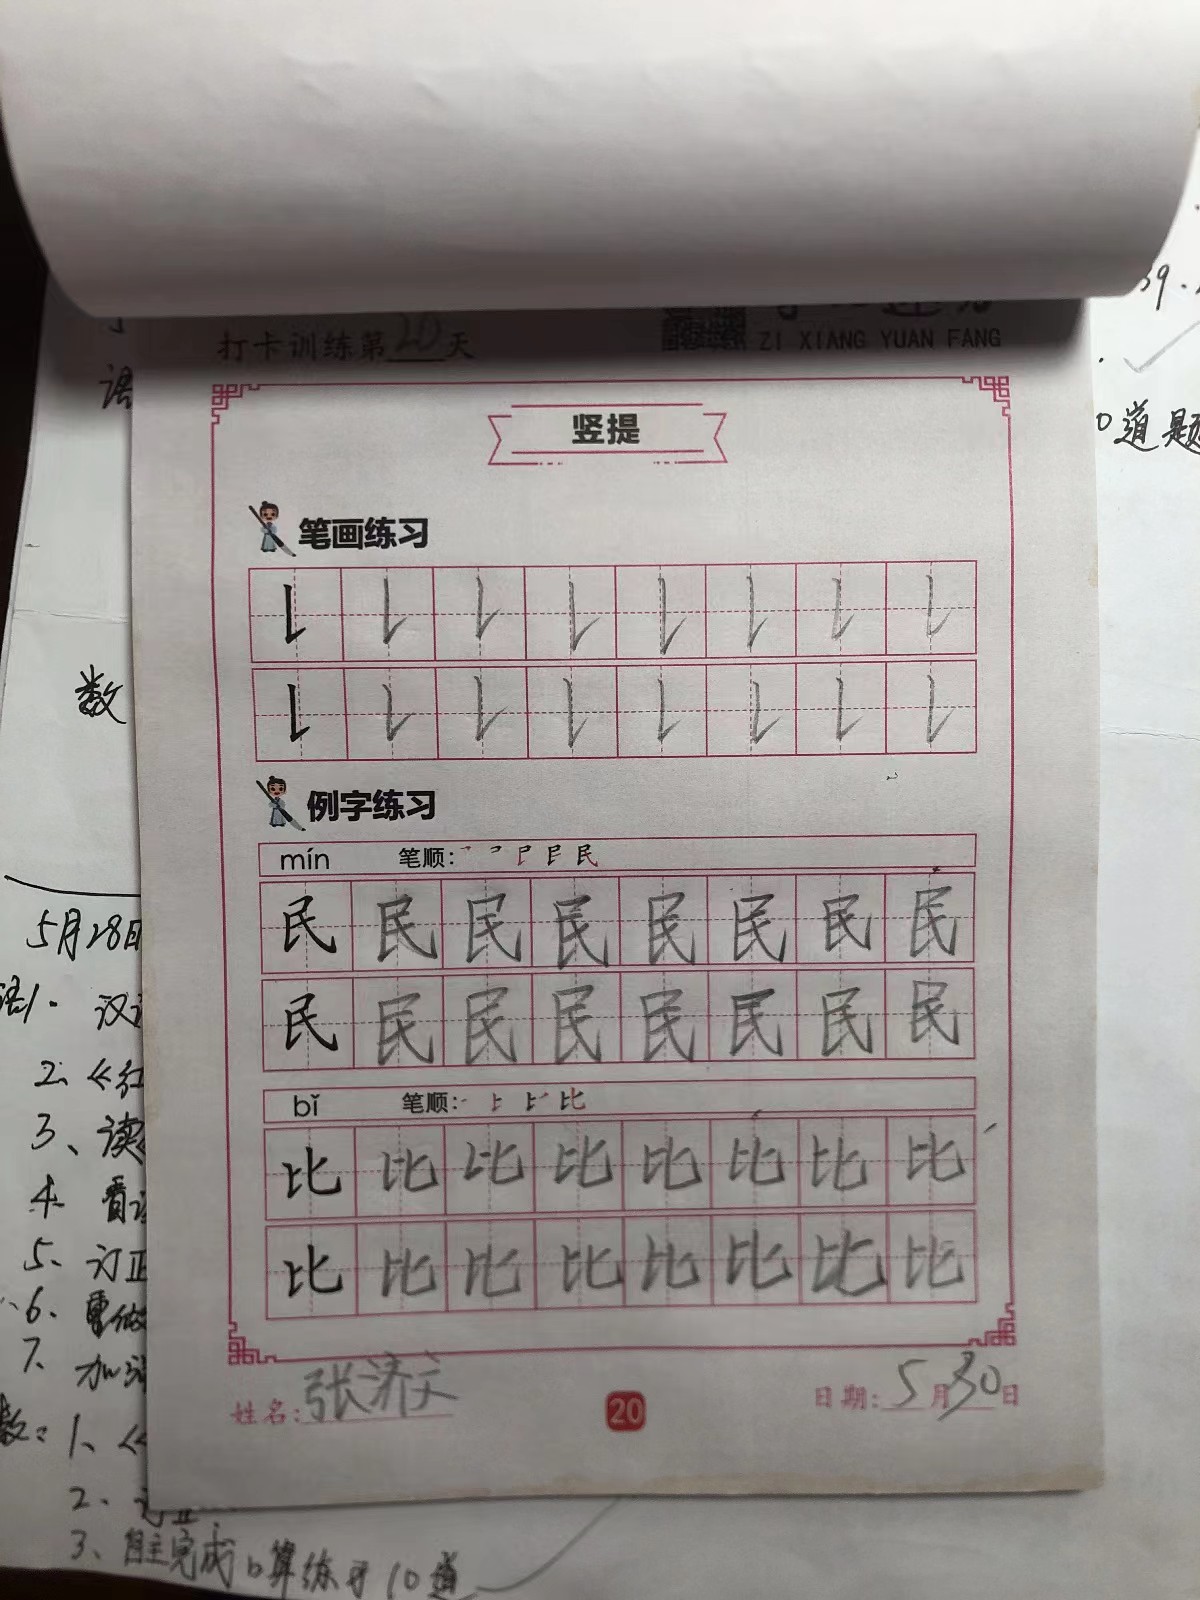 打卡训练第20天
ZI XIANG YUAN FANG
竖提
笔画练习
例字练习
mín 笔顺:
民民民民民民民民
民民民民民民民民
bǐ 笔顺:
比比比比比比比比
比比比比比比比比
姓名:张济文
20
日期:5月30日
39.
0道题
语
数
5月28日
语1.
2、《红
3、读
4、看
5、订正
6、重做
7、加
数:1、《
2、订正
3、自主完成口算练习10道